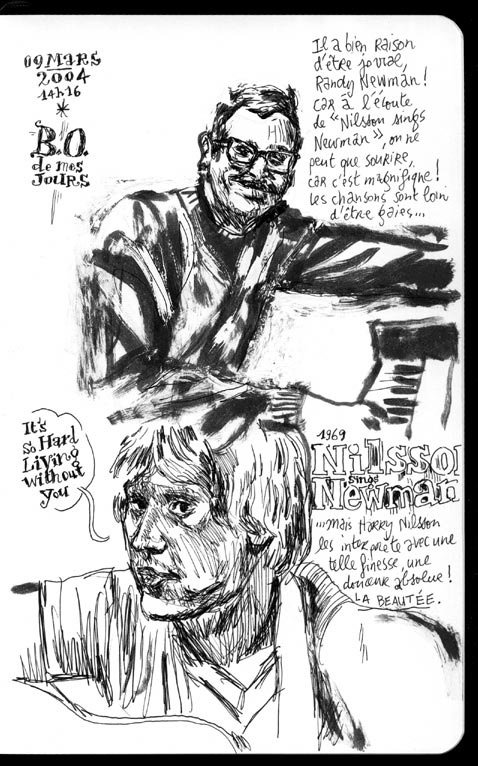 09 MARS
2004
14h16
B.O.
de mes
JOURS
Il a bien raison
d'être jovial,
Randy Newman!
Car à l'écoute
de "Nilsson sings
Newman", on ne
peut que sourire,
car c'est magnifique!
les chansons sont loin
d'être gaies...
It's
So Hard
Living
without
you
1969
Nilsson
sings
Newman
...mais Harry Nilsson
les interprète avec une
telle finesse, une
douceur absolue!
LA BEAUTÉE.